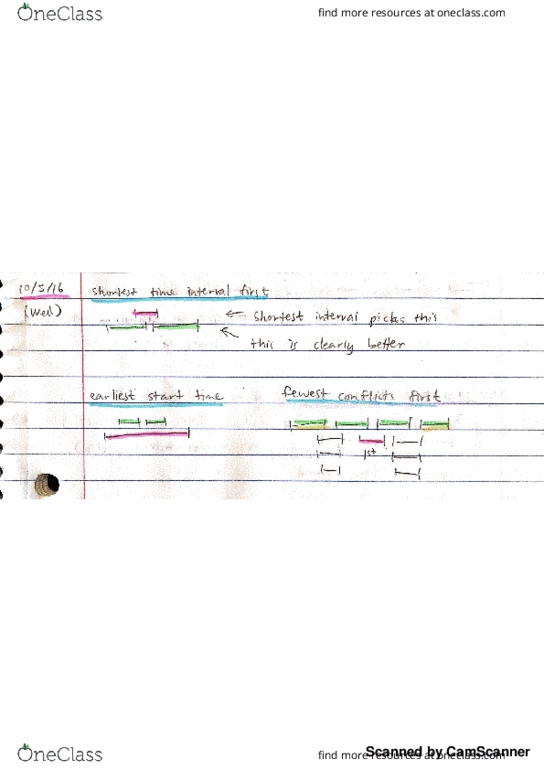 OneClass
find more resources at oneclass.com
10/5/16
(Wed)
shortest time interval first
← shortest interval picks this
this is clearly better
earliest start time
fewest conflicts first
1st
OneClass
find more resources at oneclass.com
Scanned by CamScanner